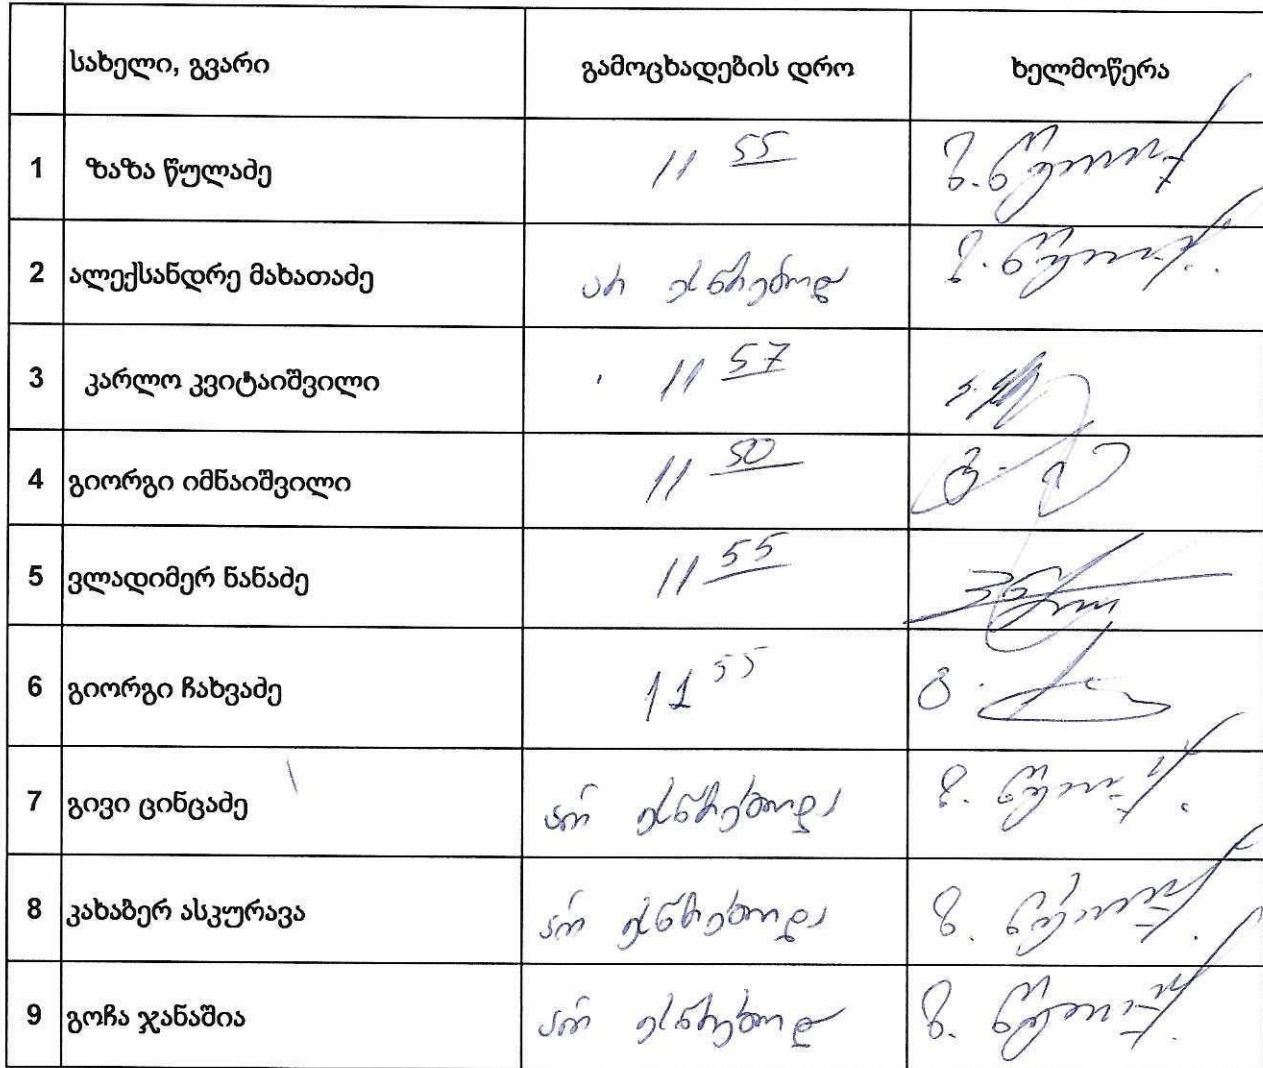 სახელი, გვარი გამოცხადების დრო ხელმოწერა
1 ზაზა წულაძე 11 55 ზ. წულაძე
2 ალექსანდრე მახათაძე არ ესწრებოდა ზ. წულაძე
3 კარლო კვიტაიშვილი 11 57
4 გიორგი იმნაიშვილი 11 50
5 ვლადიმერ ნანაძე 11 55
6 გიორგი ჩახვაძე 11 55
7 გივი ცინცაძე არ ესწრებოდა ზ. წულაძე
8 კახაბერ ასკურავა არ ესწრებოდა ზ. წულაძე
9 გოჩა ჯანაშია არ ესწრებოდა ზ. წულაძე